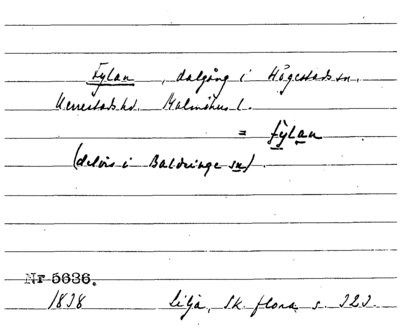 Fylan, dalgång i Högestads sn,
Herrestads hd. Malmöhus l.
= fylan
(delvis i Baldringe sn).
Nr 5636.
1838 Lilja, Sk. flora, s. 323.